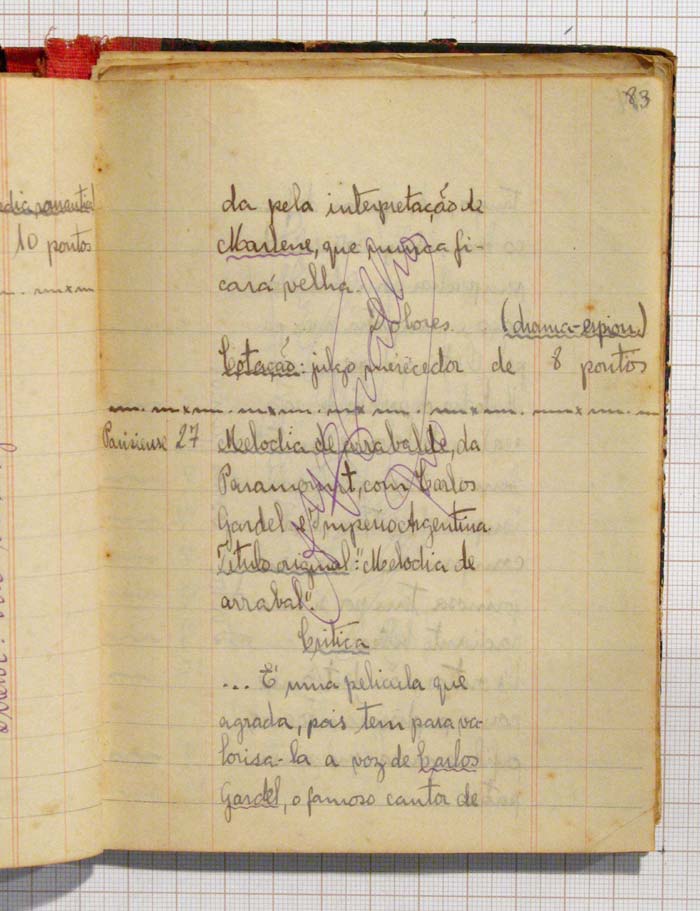 83
10 pontos
da pela interpretação de
Marlene, que nunca fi-
cará velha.
Dolores. (drama-espion.)
Cotação: julgo merecedor de 8 pontos
Parisiense 27 Melodia de arrabalde, da
Paramount, com Carlos
Gardel e Imperio Argentina.
Titulo original: "Melodia de
arrabal".
Critica
... E' uma pelicula que
agrada, pois tem para va-
lorisa-la a voz de Carlos
Gardel, o famoso cantor de